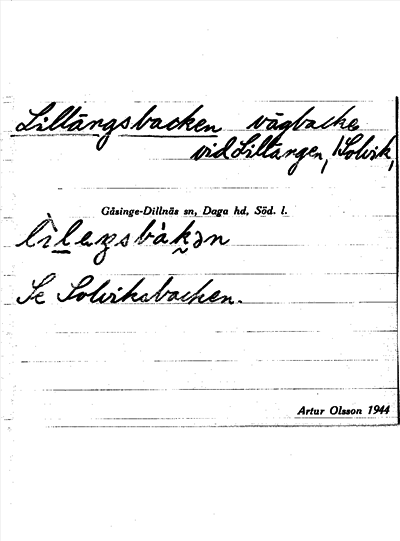 Lillängsbacken vägbacke
vid Lillängen, Solvik,
Gåsinge-Dillnäs sn, Daga hd, Söd. l.
Se Solviksbacken.
Artur Olsson 1944